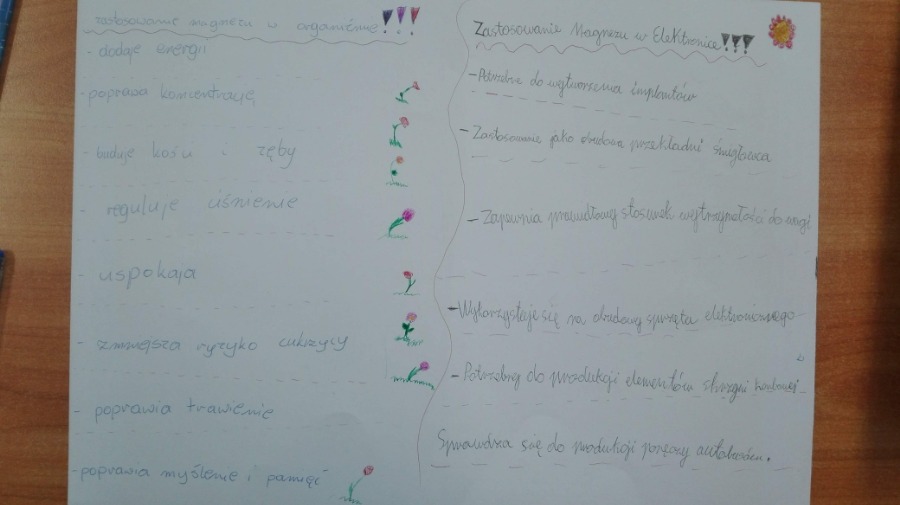 zastosowanie magnezu w organizmie!!!
- dodaje energii
- poprawa koncentrację
- buduje kości i zęby
- reguluje ciśnienie
- uspokaja
- zmniejsza ryzyko cukrzycy
- poprawia trawienie
- poprawia myślenie i pamięć
Zastosowanie Magnezu w Elektronice!!!
- Potrzebne do wytworzenia implantów
- Zastosowanie jako obudowa przekładni śmigłowca
- Zapewnia prawidłowy stosunek wytrzymałości do wagi
- Wykorzystaje się na obudowy sprzętu elektronicznego
- Potrzebny do produkcji elementów skrzyni korbowej
Sprowadza się do produkcji poręczy autobusów.